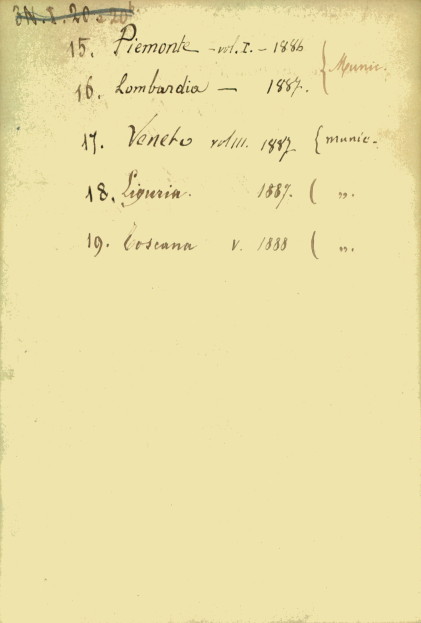 3N. I. 20
15. Piemonte - vol. I. - 1886 { Munic.
16. Lombardia — 1887.
17. Veneto vol III. 1887 { munic.
18. Liguria. 1887. ( „.
19. Toscana V. 1888 ( „.